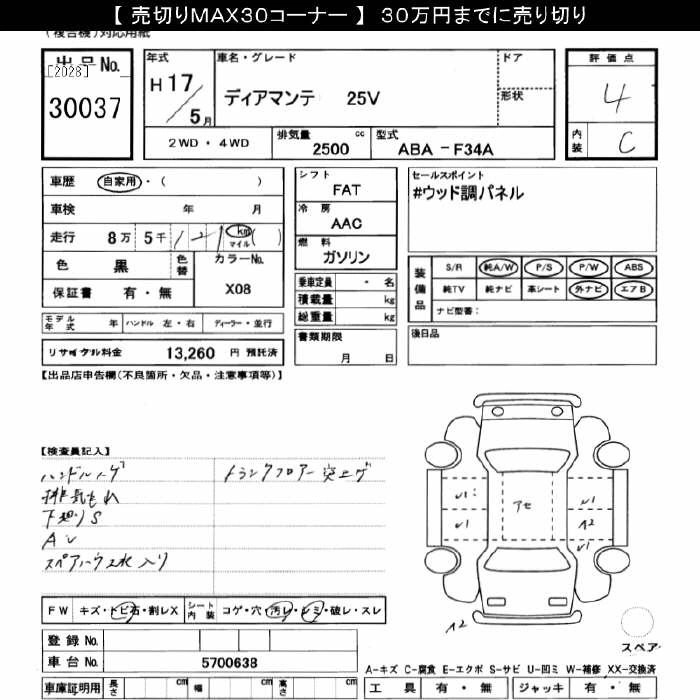 【 売切りMAX30コーナー 】 30万円までに売り切り
(複合機)対応用紙
出品No.
[2028]
30037
年式
H 17
5月
車名・グレード
ディアマンテ 25V
ドア
形状
評価点
4
内装
C
2WD・4WD
排気量
cc
2500
型式
ABA - F34A
車歴 自家用・( )
車検 年 月
走行 8万 5千 1 2 1 km マイル ( )
色 黒
色替
カラーNo.
X08
保証書 有・無
モデル年式 年
ハンドル 左・右
ディーラー・並行
リサイクル料金 13,260 円 預託済
シフト
FAT
冷房
AAC
燃料
ガソリン
乗車定員 ・ 名
積載量 kg
総重量 kg
書類期限
月 日
セールスポイント
#ウッド調パネル
装備品
S/R 純A/W P/S P/W ABS
純TV 純ナビ 革シート 外ナビ エアB
ナビ型番:
後日品
【出品店申告欄(不良箇所・欠品・注意事項等)】
【検査員記入】
ハンドルハゲ
トランクフロアー突上ゲ
排気もれ
下廻りS
スペアハウス水入り
U1
U1
アセ
U1
A2
A2
スペア
FW キズ・トビ石・割レX
シート内装 コゲ・穴・汚レ・シミ・破レ・スレ
登録No.
車台No. 5700638
車庫証明用 長さ cm 幅 cm 高さ cm
A-キズ C-腐食 E-エクボ S-サビ U-凹ミ W-補修 XX-交換済
工具 有・無 ジャッキ 有・無